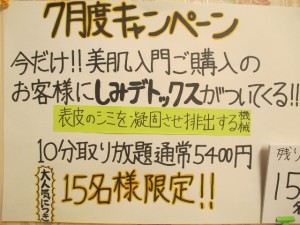 7月度キャンペーン
今だけ!!美肌入門ご購入の
お客様にしみデトックスがついてくる!!
表皮のシミを凝固させ排出する機械
10分取り放題通常5400円
大人気につき
15名様限定!!
残り
15